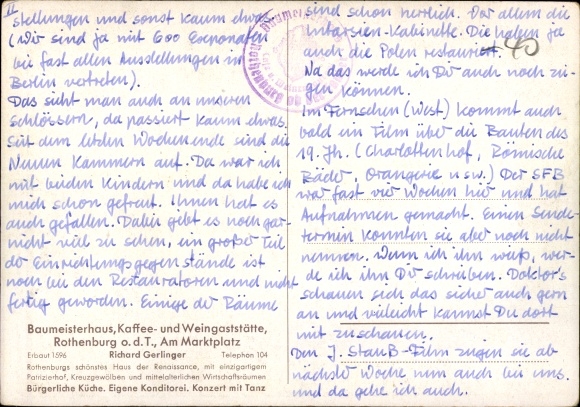 II
stellungen und sonst kaum etwas
(wir sind ja mit 600 Exponaten
bei fast allen Ausstellungen in
Berlin vertreten).
Das sieht man auch an unseren
Schlössern, da passiert kaum etwas.
Seit dem letzten Wochenende sind die
Neuen Kammern auf. Da war ich
mit beiden Kindern und da habe ich
mich schon gefreut. Ihnen hat es
auch gefallen. Dabei gibt es noch gar
nicht viel zu sehen, ein großer Teil
der Einrichtungsgegenstände ist
noch bei den Restauratoren und nicht
fertig geworden. Einige der Räume
Baumeisterhaus, Kaffee- und Weingaststätte,
Rothenburg o.d.T., Am Marktplatz
Erbaut 1596 Richard Gerlinger Telephon 104
Rothenburgs schönstes Haus der Renaissance, mit einzigartigem
Patrizierhof, Kreuzgewölben und mittelalterlichen Wirtschaftsräumen
Bürgerliche Küche. Eigene Konditorei. Konzert mit Tanz
sind schon herrlich. Vor allem die
Intarsien-Kabinette. Die haben ja
auch die Polen restauriert. 40
Na das werde ich Dir auch noch zei-
gen können.
Im Fernsehen (West) kommt auch
bald ein Film über die Bauten des
19. Jh. (Charlottenhof, Römische
Bäder, Orangerie usw.) Der SFB
war fast vier Wochen hier und hat
Aufnahmen gemacht. Einen Sende-
termin konnten sie aber noch nicht
nennen. Wenn ich ihn weiß, wer-
de ich ihn Dir schreiben. Doktor's
schauen sich das sicher auch gern
an und vielleicht kannst Du dort
mit zuschauen.
Den J. Strauß-Film zeigen sie ab
nächste Woche nun auch bei uns.
und da gehe ich auch.